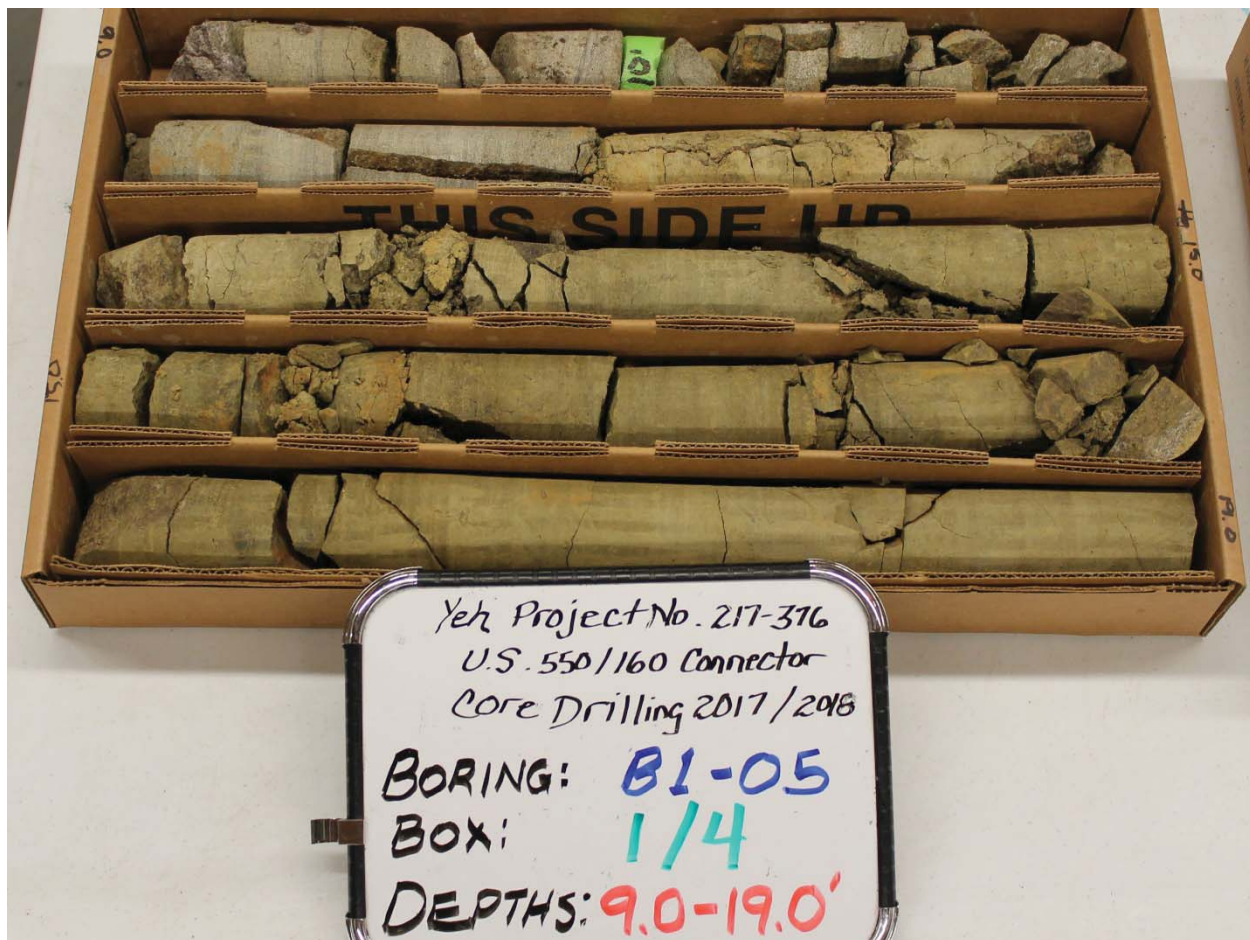 9.0
10'
THIS SIDE UP
15.0
15.0
19.0
Yeh Project No. 217-376
U.S. 550/160 Connector
Core Drilling 2017/2018
BORING: B1-05
BOX: 1/4
DEPTHS: 9.0-19.0'